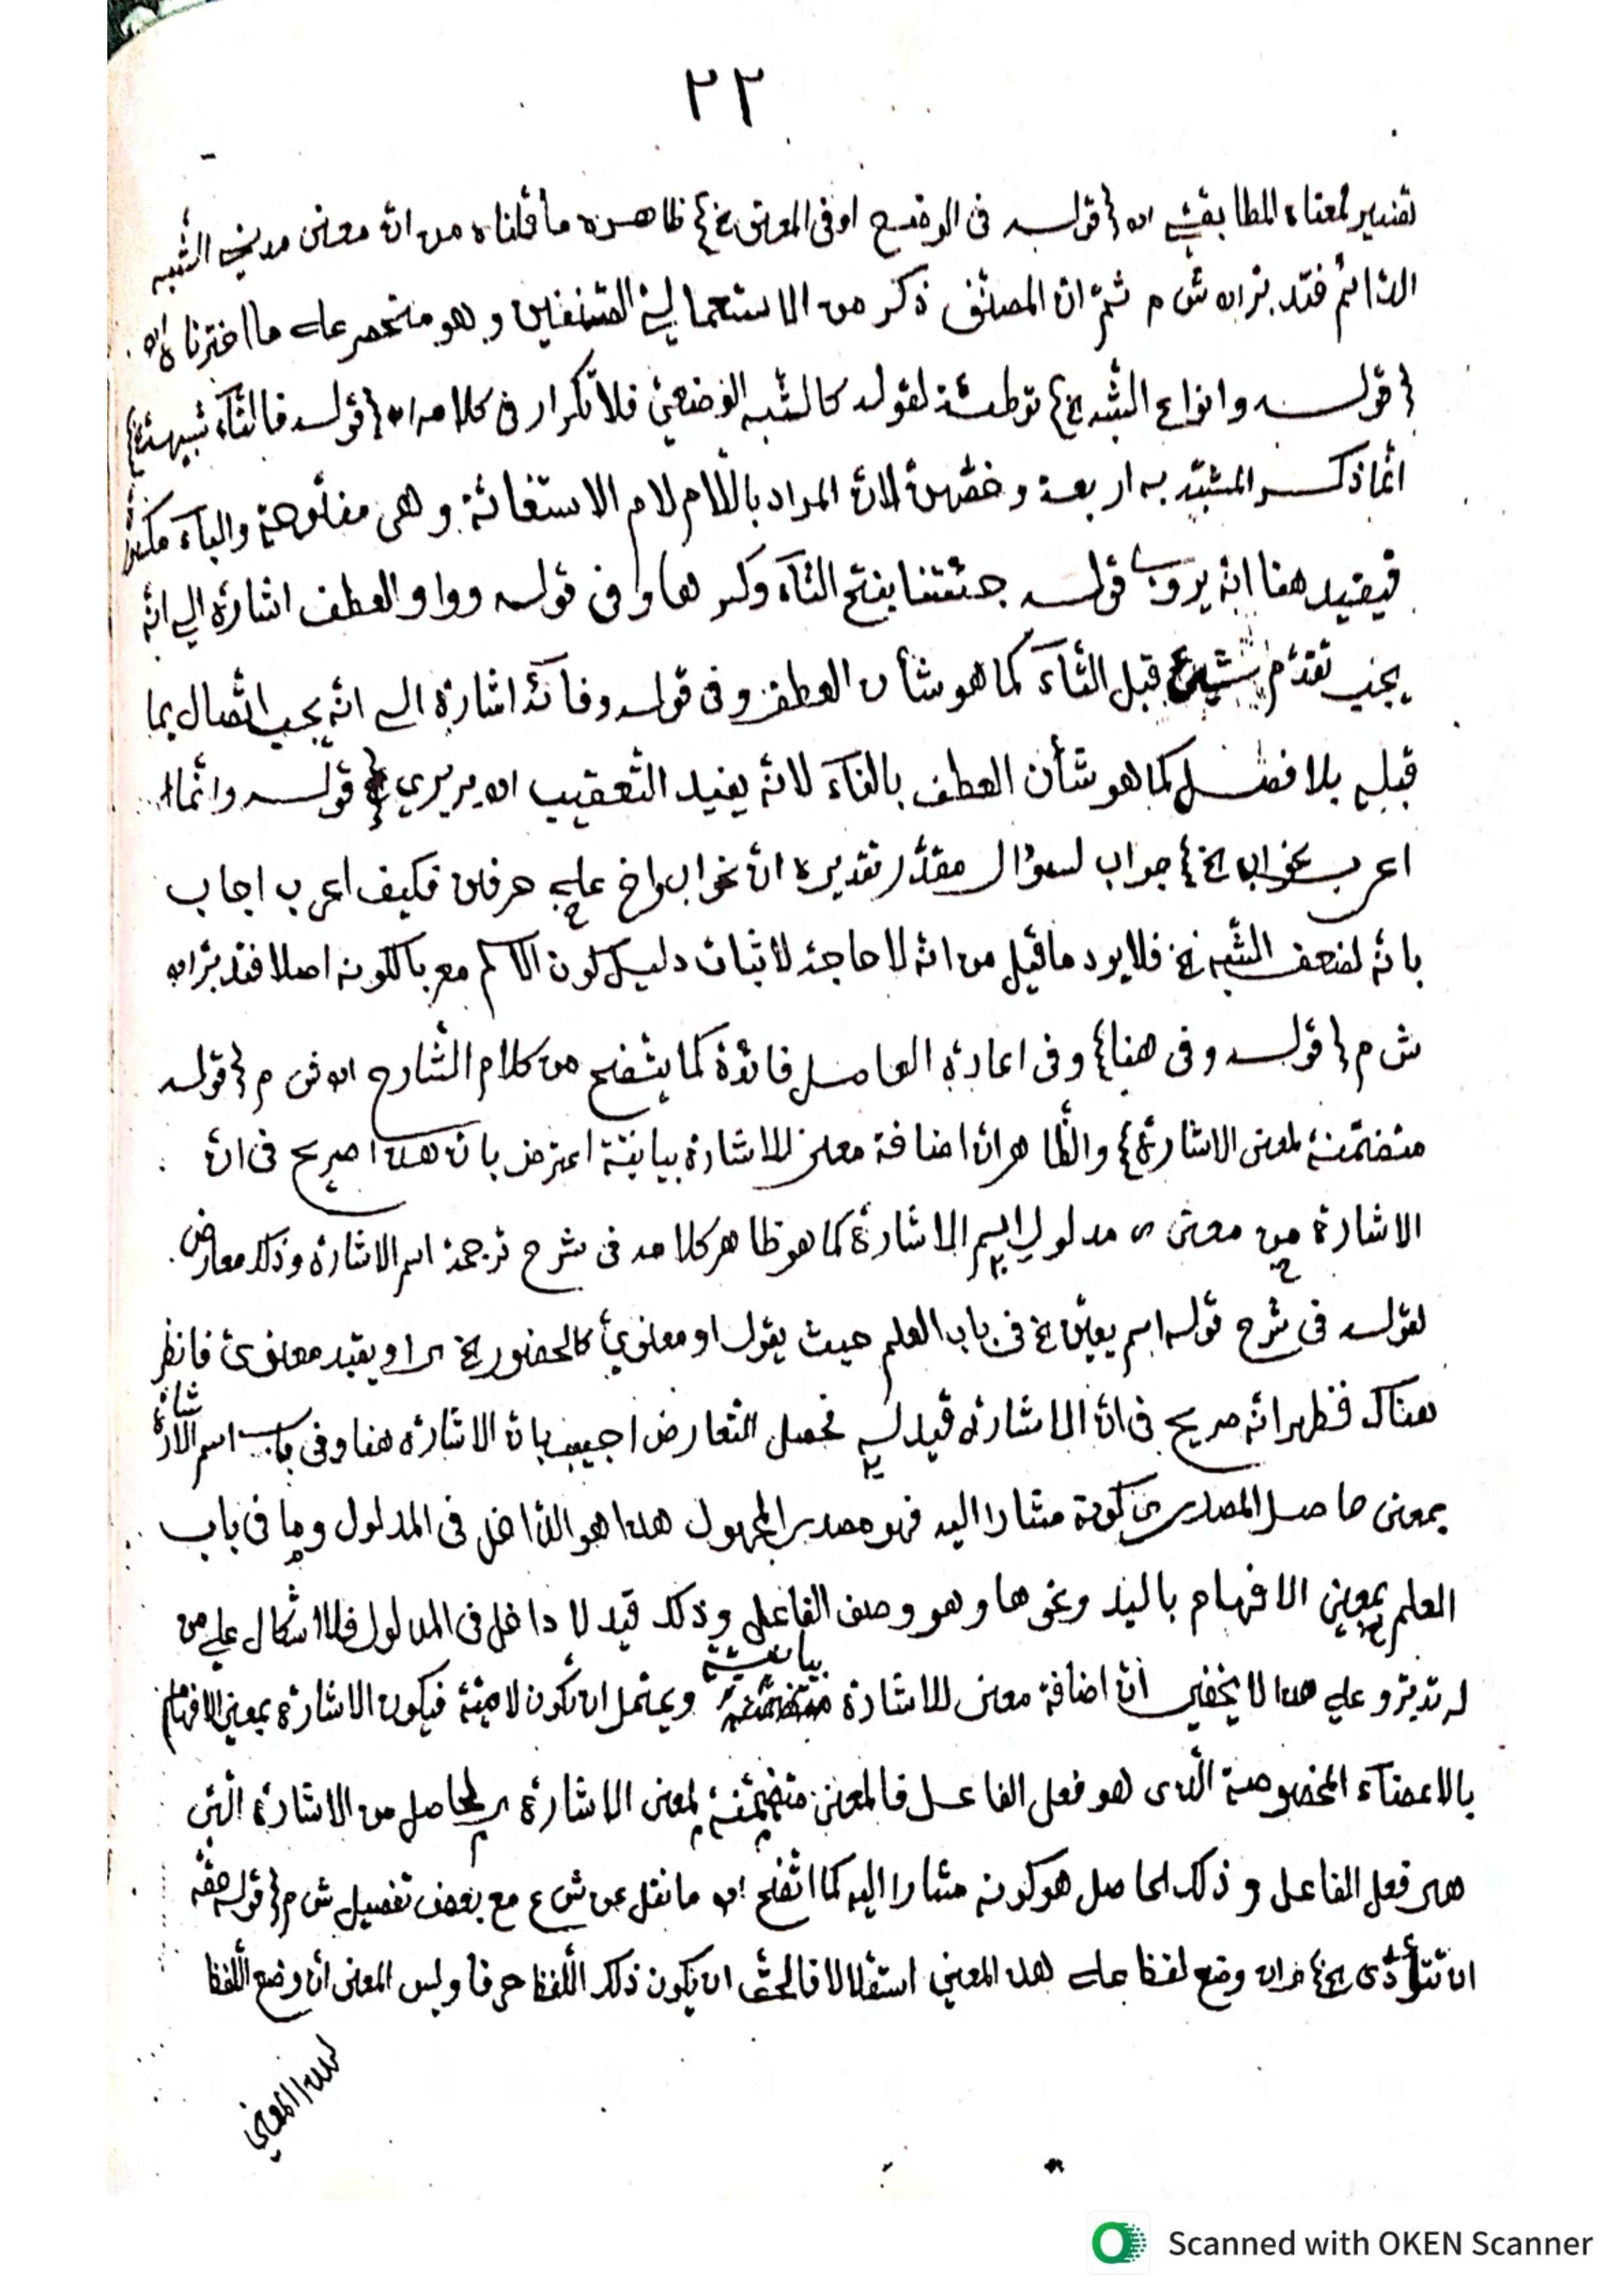 ٢٢
تفسير لمعناه المطابقي اه {قوله في الوضع او في المعنى الخ} ظاهره ما قلناه من انّ معنى مدني الشبه
الدّائم فتدبّر اه ش م ثمّ ان المصنّف ذكر من الاستعمالية القسمين وهو منحصر على ما اخترناه اه
{قوله وانواع الشبه الخ} توطئة لقوله كالشبه الوضعيّ فلا تكرار في كلامه اه {قوله فالتّاء شبيهة الخ}
انّما ذكر المشبّه به اربعة وخصّهنّ لانّ المراد باللّام لام الاستغاثة وهي مفتوحة والباء مكسورة
فيفيد هنا انّه يروى قوله جئتنا بفتح التّاء وكسرها وفي قوله وواو العطف اشارة الى انّه
يجب تقدّم شيئ قبل التّاء كما هو شأن العطف وفي قوله وفائه اشارة الى انّه يجب اتّصال بما
قبله بلا فصل كما هو شأن العطف بالفاء لانّه يفيد التّعقيب اه {قوله وانّما
اعرب نحو اب الخ} جواب لسؤال مقدّر تقديره انّ نحو اب واخ على حرفين فكيف اعرب اجاب
بانّه لضعف الشّبه الخ فلا يرد ما قيل من انّه لا حاجة لاثبات دليل لكون الاسم معربا لكونه اصلا فتدبّر اه
ش م {قوله وفي هنا} وفي اعادة العامل فائدة كما يتّضح من كلام الشّارح اه ش م {قوله
متضمّنة لمعنى الاشارة} والظّاهر انّ اضافة معنى للاشارة بيانيّة اعترض بانّ هذا صريح في انّ
الاشارة من معنى اى مدلول اسم الاشارة كما هو ظاهر كلامه في شرح ترجمة اسم الاشارة وذلك معارض
لقوله في شرح قوله اسم يعيّن الخ في باب العلم حيث يقول او معنويّ كالحضور الخ اى او بقيد معنويّ فانظر
هناك فظهر انّه صريح في انّ الاشارة قيد له فحصل التّعارض اجيب بانّ الاشارة هنا وفي باب اسم الاشارة
بمعنى حاصل المصدر اى كونه مشارا اليه فهو مصدر المجهول هذا هو الدّاخل في المدلول وما في باب
العلم بمعنى الافهام باليد ونحوها وهو وصف الفاعل وذلك قيد لا داخل في المدلول فلا اشكال على من
له تدبّر وعلى هذا لا يخفى أنّ اضافة معنى للاشارة بيانيّة ويحتمل ان تكون لاميّة فيكون الاشارة بمعنى الافهام
بالاعضاء المخصوصة الّذى هو فعل الفاعل فالمعنى متضمّنة لمعنى الاشارة اى لحاصل من الاشارة الّتى
هى فعل الفاعل وذلك الحاصل هو كونه مشارا اليه كما اتّضح اه ما نقل عن ش ع مع بعض تفصيل ش م {قوله حقّه
ان تتأدّى الخ} وضع لفظ على هذا المعنى استقلالا فالحقّ ان يكون ذلك اللّفظ حرفا وليس المعنى أن وضع اللّفظ
لهذا المعنى
Scanned with OKEN Scanner